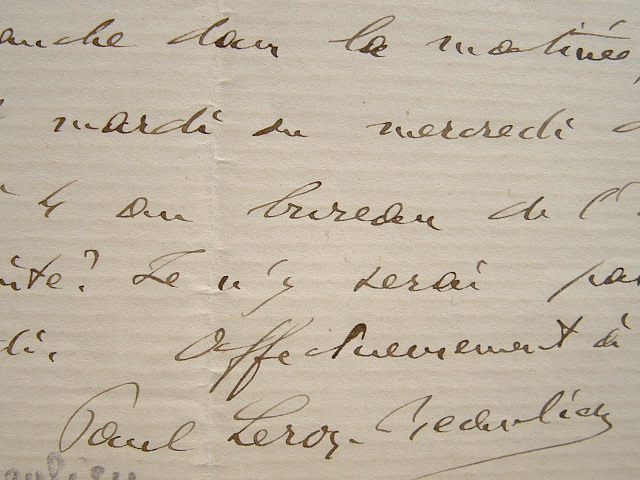 anche dans la matinée,
mardi ou mercredi d
4 au bureau de l'
ite? Je n'y serai pas
di. Affectueusement à
Paul Leroy-Beaulieu
aulieu